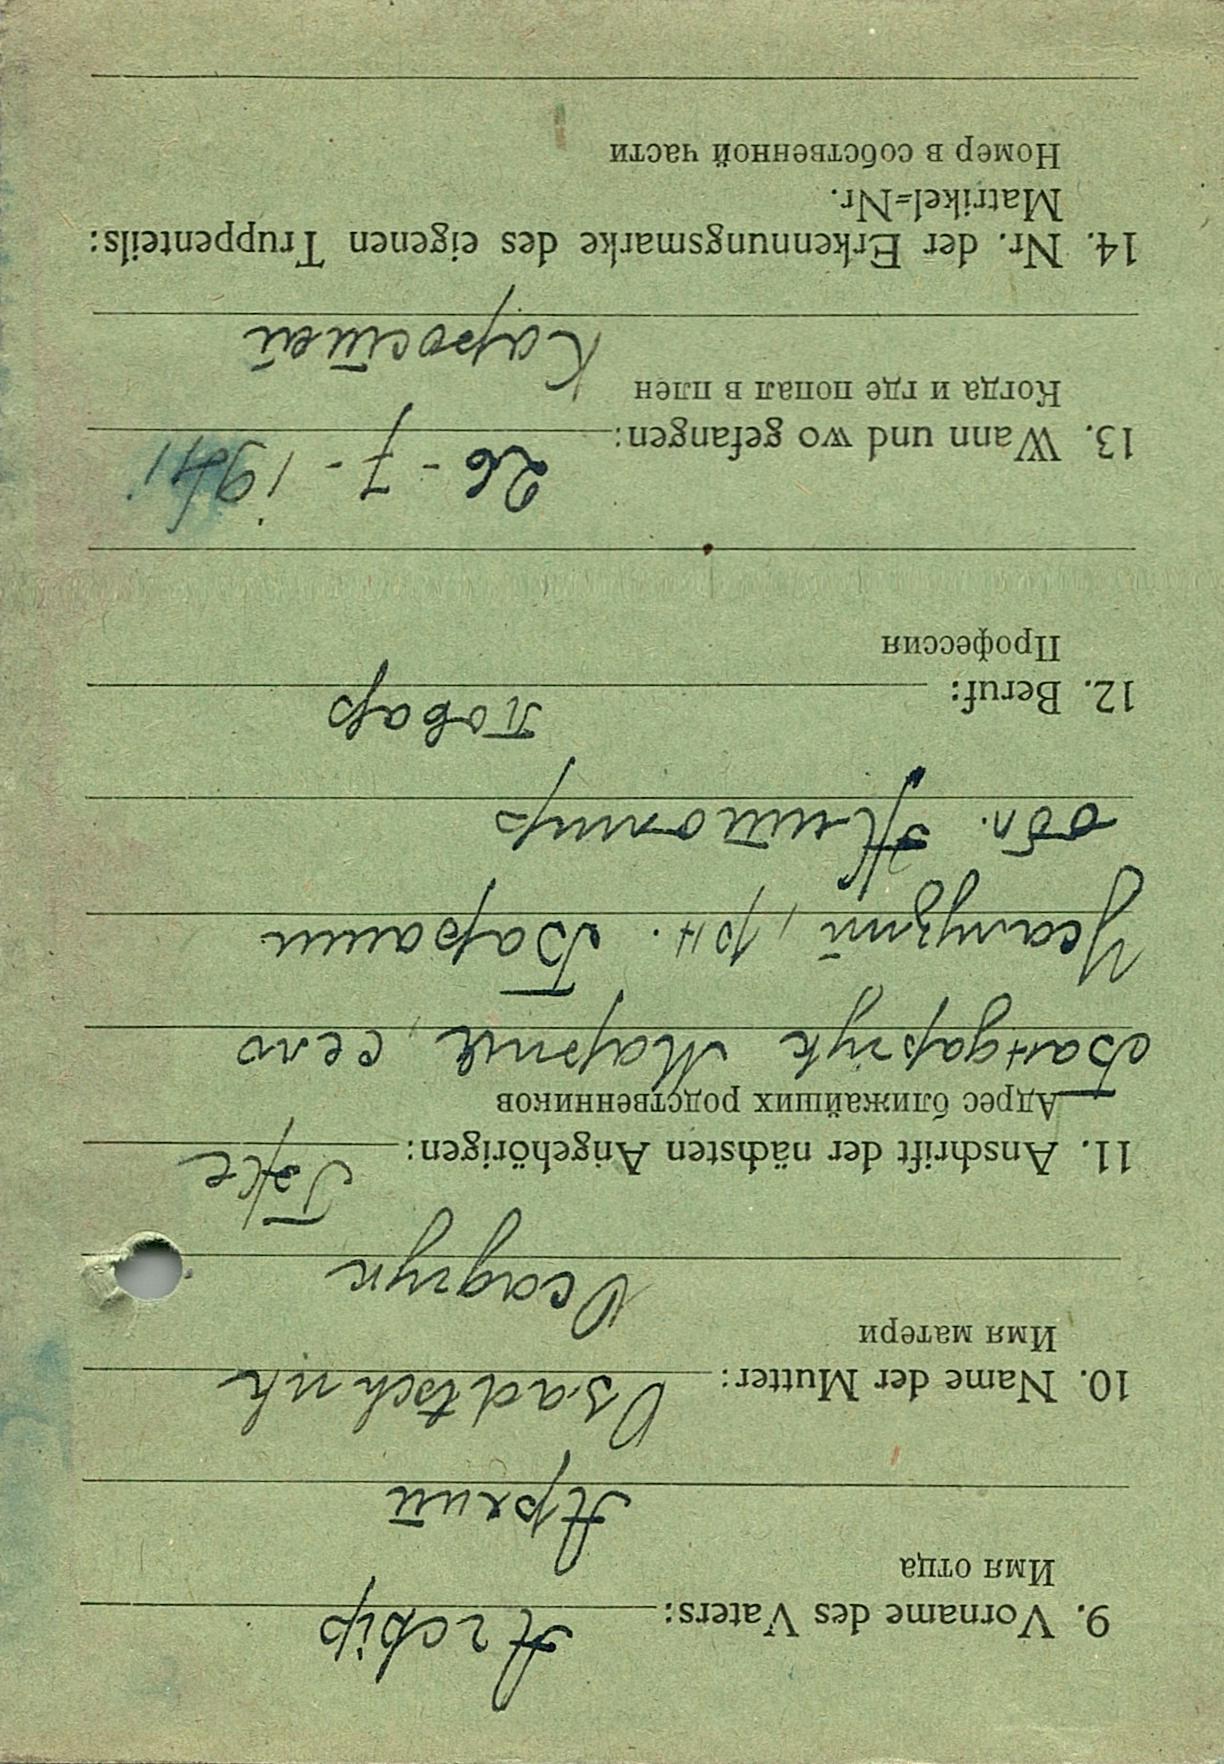 9. Vorname des Vaters: Archip
Имя отца
Архип
10. Name der Mutter: Osadtschuk
Имя матери
Осадчук
11. Anschrift der nächsten Angehörigen: Тоже
Адрес ближайших родственников
Бандарчук Мария, село
рн. Бараши
обл. Житомир
12. Beruf: повар
Профессия
13. Wann und wo gefangen: 26-7-1941
Когда и где попал в плен
Каростей
14. Nr. der Erkennungsmarke des eigenen Truppenteils:
Matrikel=Nr.
Номер в собственной части